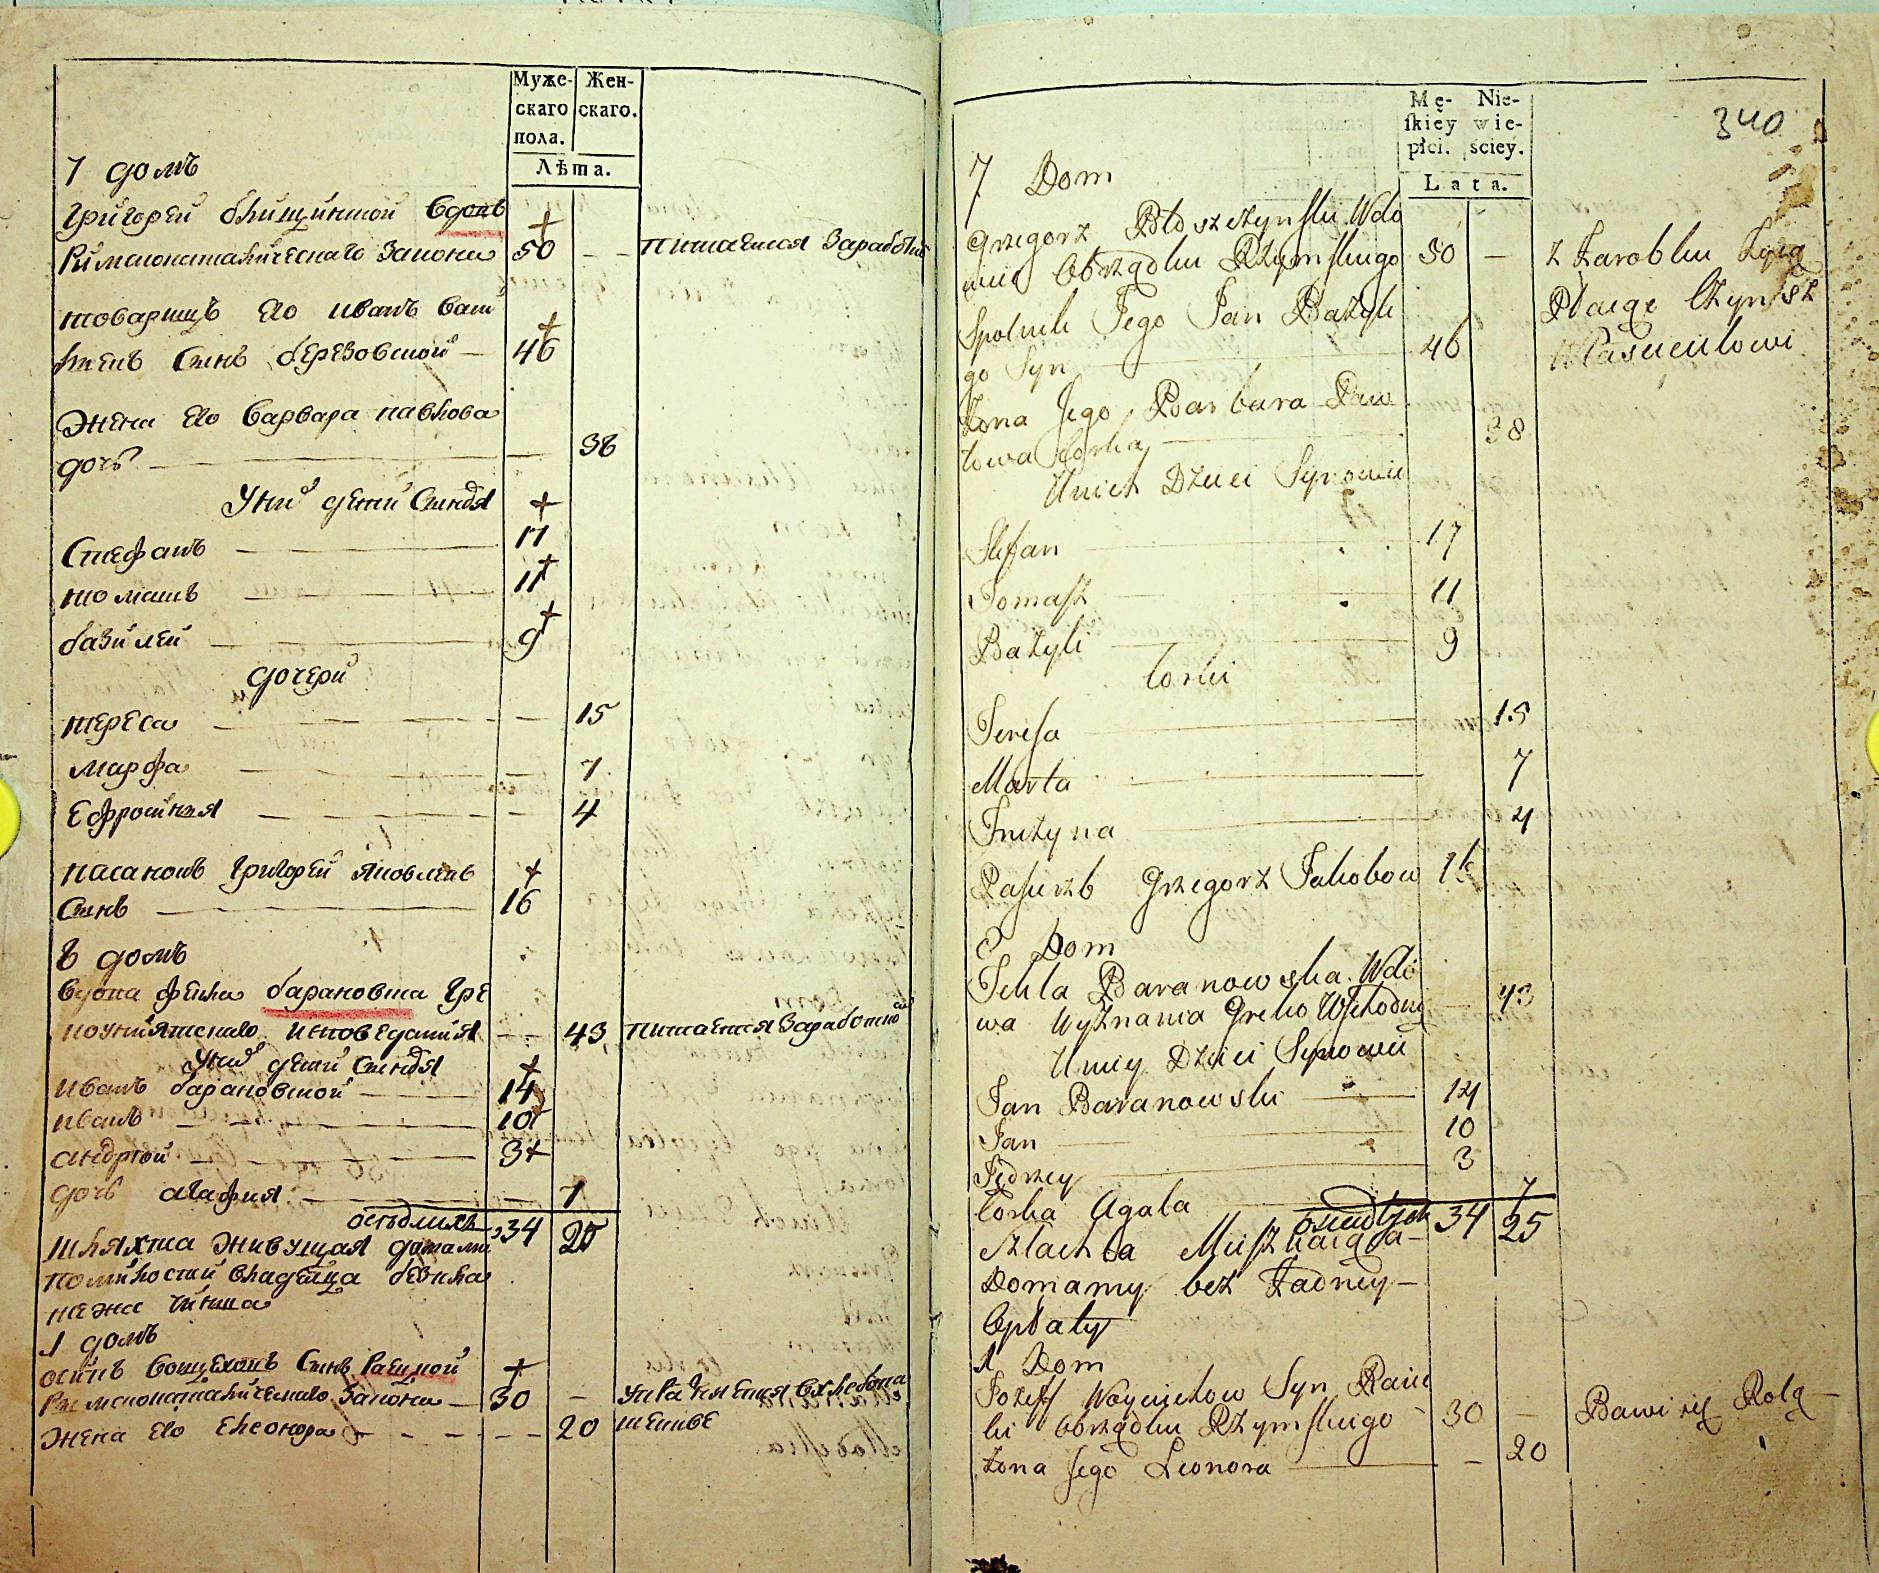 Муже-
скаго
пола.
Жен-
скаго.
Лѣта.
7 домъ
Григорей Блищинской вдовъ
Римскокаталическаго Закона 50 — питается Заработко
товарищъ его иванъ васи
льевъ сынъ березовской — 46
жена его варвара павлова
дочь — 38
У них дети сыновья
Стефанъ — 17
томашъ — 11
базилей — 9
дочери
тереса — 15
марфа — 7
Ефросиния — 4
пасанокъ Григорей яковлевъ
сынъ — 16
8 домъ
вдова фекла барановска Гре
коуниятскаго исповедания — 43 питается Заработко
У ней дети сыновья
иванъ барановской — 14
иванъ — 10
андрей — 3
дочь агафия — 7
оседлихъ 34 25
шляхта живущая домами
по милости владельца без пла
тежа чинша
1 домъ
осипъ войцеховъ сынъ Рацкой
Римскокаталическаго Закона — 30 — упражняется в хлебопа
жена его елеонора — 20 шестве
340
Mę-
skiey
płci.
Nie-
wie-
sciey.
Lata.
7 Dom
Grzegorz Błoszczynski Wdo
wiec Obrządku Rzymskiego 50 — z Zarobku Zyią
Spolnik Jego Jan Bazyli Płacąc Czynsz
go Syn — 46 Własicielowi
Zona Jego Barbara Paw
łowa Corka — 38
U nich Dzieci Synowie
Stefan — 17
Tomasz — 11
Bazyli — 9
Corki
Teresa — 15
Marta — 7
Fruzyna — 4
Pasierzb Grzegorz Jakobow 16
8 Dom
Tekla Baranowska Wdo
wa Wyznania Greko Wschodnie — 43
U niey Dzieci Synowie
Jan Baranowski — 14
Jan — 10
Jędrzey — 3
Corka Agata — 7
Osiadłych 34 25
Szlachta Mieszkaiąca —
Domamy bez Zadney —
Opłaty
1 Dom
Jozeff Woyciechow Syn Raic
ki Obrządku Rzymskiego — 30 — Bawi się Rolą —
Zona Jego Leonora — 20